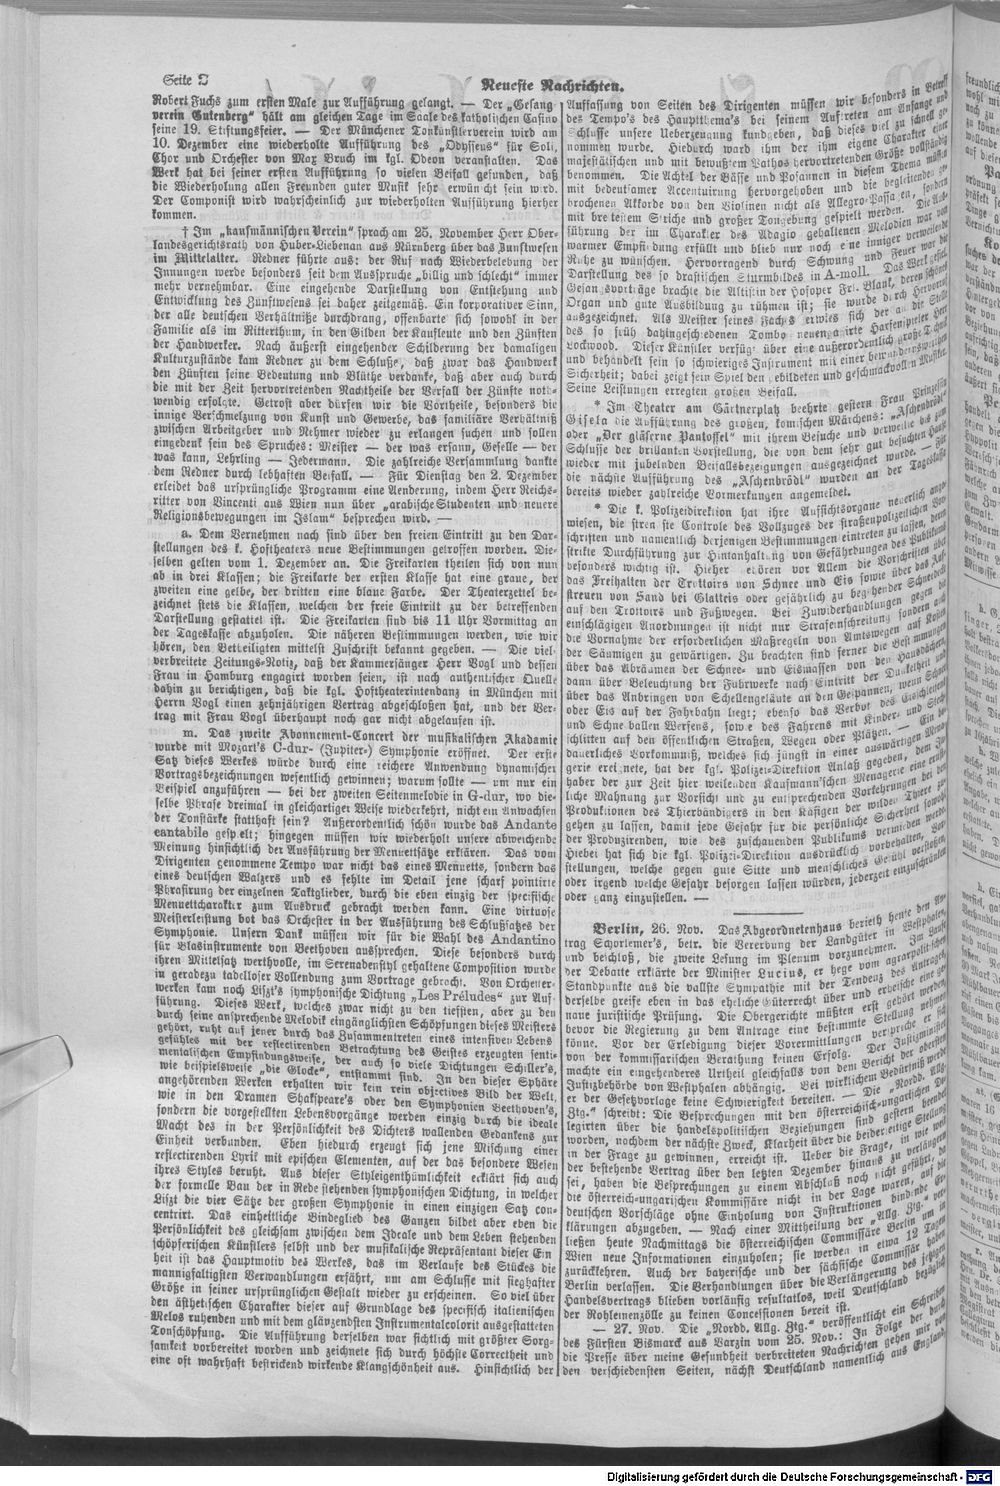 Seite 2
Neueste Nachrichten.
Robert Fuchs zum ersten Male zur Aufführung gelangt. — Der „Gesang
verein Gutenberg“ hält am gleichen Tage im Saale des katholischen Casino
seine 19. Stiftungsfeier. — Der Münchener Tonkünstlerverein wird am
10. Dezember eine wiederholte Aufführung des „Odysseus“ für Soli,
Chor und Orchester von Max Bruch im kgl. Odeon veranstalten. Das
Werk hat bei seiner ersten Aufführung so vielen Beifall gefunden, daß
die Wiederholung allen Freunden guter Musik sehr erwünscht sein wird.
Der Componist wird wahrscheinlich zur wiederholten Aufführung hierher
kommen.
† Im „kaufmännischen Verein“ sprach am 25. November Herr Ober-
landesgerichtsrath von Huber-Liebenau aus Nürnberg über das Zunftwesen
im Mittelalter. Redner führte aus: der Ruf nach Wiederbelebung der
Innungen werde besonders seit dem Ausspruche „billig und schlecht“ immer
mehr vernehmbar. Eine eingehende Darstellung von Entstehung und
Entwicklung des Zunftwesens sei daher zeitgemäß. Ein korporativer Sinn,
der alle deutschen Verhältniße durchdrang, offenbarte sich sowohl in der
Familie als im Ritterthum, in den Gilden der Kaufleute und den Zünften
der Handwerker. Nach äußerst eingehender Schilderung der damaligen
Kulturzustände kam Redner zu dem Schluße, daß zwar das Handwerk
den Zünften seine Bedeutung und Blüthe verdanke, daß aber auch durch
die mit der Zeit hervortretenden Nachtheile der Verfall der Zünfte noth-
wendig erfolgte. Getrost aber dürfen wir die Vortheile, besonders die
innige Verschmelzung von Kunst und Gewerbe, das familiäre Verhältniß
zwischen Arbeitgeber und Nehmer wieder zu erlangen suchen und sollen
eingedenk sein des Spruches: Meister — der was ersann, Geselle — der
was kann, Lehrling — Jedermann. Die zahlreiche Versammlung dankte
dem Redner durch lebhaften Beifall. — Für Dienstag den 2. Dezember
erleidet das ursprüngliche Programm eine Aenderung, indem Herr Reichs-
ritter von Vincenti aus Wien nun über „arabische Studenten und neuere
Religionsbewegungen im Islam“ besprechen wird. —
a. Dem Vernehmen nach sind über den freien Eintritt zu den Dar-
stellungen des k. Hoftheaters neue Bestimmungen getroffen worden. Die-
selben gelten vom 1. Dezember an. Die Freikarten theilen sich von nun
ab in drei Klassen; die Freikarte der ersten Klasse hat eine graue, der
zweiten eine gelbe, der dritten eine blaue Farbe. Der Theaterzettel be-
zeichnet stets die Klassen, welchen der freie Eintritt zu der betreffenden
Darstellung gestattet ist. Die Freikarten sind bis 11 Uhr Vormittag an
der Tageskasse abzuholen. Die näheren Bestimmungen werden, wie wir
hören, den Betheiligten mittelst Zuschrift bekannt gegeben. — Die viel-
verbreitete Zeitungs-Notiz, daß der Kammersänger Herr Vogl und dessen
Frau in Hamburg engagirt worden seien, ist nach authentischer Quelle
dahin zu berichtigen, daß die kgl. Hoftheaterintendanz in München mit
Herrn Vogl einen zehnjährigen Vertrag abgeschlossen hat, und der Ver-
trag mit Frau Vogl überhaupt noch gar nicht abgelaufen ist.
m. Das zweite Abonnement-Concert der musikalischen Akademie
wurde mit Mozart's C-dur- (Jupiter-) Symphonie eröffnet. Der erste
Satz dieses Werkes würde durch eine reichere Anwendung dynamischer
Vortragsbezeichnungen wesentlich gewinnen; warum sollte — um nur ein
Beispiel anzuführen — bei der zweiten Seitenmelodie in G-dur, wo die-
selbe Phrase dreimal in gleichartiger Weise wiederkehrt, nicht ein Anwachsen
der Tonstärke statthaft sein? Außerordentlich schön wurde das Andante
cantabile gespielt; hingegen müssen wir wiederholt unsere abweichende
Meinung hinsichtlich der Ausführung der Menuettsätze erklären. Das vom
Dirigenten genommene Tempo war nicht das eines Menuetts, sondern das
eines deutschen Walzers und es fehlte im Detail jene scharf pointirte
Phrasirung der einzelnen Taktglieder, durch die eben einzig der specifische
Menuettcharakter zum Ausdruck gebracht werden kann. Eine virtuose
Meisterleistung bot das Orchester in der Ausführung des Schlußsatzes der
Symphonie. Unsern Dank müssen wir für die Wahl des Andantino
für Blasinstrumente von Beethoven aussprechen. Diese besonders durch
ihren Mittelsatz werthvolle, im Serenadenstyl gehaltene Composition wurde
in geradezu tadelloser Vollendung zum Vortrage gebracht. Von Orchester-
werken kam noch Liszt's symphonische Dichtung „Les Préludes“ zur Auf-
führung. Dieses Werk, welches zwar nicht zu den tiefsten, aber zu den
durch seine ansprechende Melodik eingänglichsten Schöpfungen dieses Meisters
gehört, ruht auf jener durch das Zusammentreten eines intensiven Lebens
gefühles mit der reflectirenden Betrachtung des Geistes erzeugten senti-
mentalischen Empfindungsweise, der auch so viele Dichtungen Schiller's,
wie beispielsweise „die Glocke“, entstammt sind. In den dieser Sphäre
angehörenden Werken erhalten wir kein rein objectives Bild der Welt,
wie in den Dramen Shakspeare's oder den Symphonien Beethoven's,
sondern die vorgestellten Lebensvorgänge werden einzig durch die ideale
Macht des in der Persönlichkeit des Dichters wallenden Gedankens zur
Einheit verbunden. Eben hiedurch erzeugt sich jene Mischung einer
reflectirenden Lyrik mit epischen Elementen, auf der das besondere Wesen
ihres Styles beruht. Aus dieser Styleigenthümlichkeit erklärt sich auch
der formelle Bau der in Rede stehenden symphonischen Dichtung, in welcher
Liszt die vier Sätze der großen Symphonie in einen einzigen Satz con-
centrirt. Das einheitliche Bindeglied des Ganzen bildet aber eben die
Persönlichkeit des gleichsam zwischen dem Ideale und dem Leben stehenden
schöpferischen Künstlers selbst und der musikalische Repräsentant dieser Ein
heit ist das Hauptmotiv des Werkes, das im Verlaufe des Stückes die
mannigfaltigsten Verwandlungen erfährt, um am Schlusse mit sieghafter
Größe in seiner ursprünglichen Gestalt wieder zu erscheinen. So viel über
den ästhetischen Charakter dieser auf Grundlage des specifisch italienischen
Melos ruhenden und mit dem glänzendsten Instrumentalcolorit ausgestatteten
Tonschöpfung. Die Aufführung derselben war sichtlich mit größter Sorg-
samkeit vorbereitet worden und zeichnete sich durch höchste Correctheit und
eine oft wahrhaft bestrickend wirkende Klangschönheit aus. Hinsichtlich der
Auffassung von Seiten des Dirigenten müssen wir besonders in Betreff
des Tempo's des Hauptthema's bei seinem Auftreten am Anfange und
Schlusse unsere Ueberzeugung kundgeben, daß dieses viel zu schnell ge-
nommen wurde. Hiedurch ward ihm der ihm eigene Charakter einer
majestätischen und mit bewußtem Pathos hervortretenden Größe vollständig
benommen. Die Achtel der Bässe und Posaunen in diesem Thema müssen
mit bedeutsamer Accentuirung hervorgehoben und die begleitenden ge-
brochenen Akkorde von den Violinen nicht als Allegro-Passagen, sondern
mit breitestem Striche und großer Tongebung gespielt werden. Die Aus-
führung der im Charakter des Adagio gehaltenen Melodien war von
warmer Empfindung erfüllt und blieb nur noch eine inniger verweilende
Ruhe zu wünschen. Hervorragend durch Schwung und Feuer war die
Darstellung des so drastischen Sturmbildes in A-moll. Das Werk gefiel.
Gesangsvorträge brachte die Altistin der Hofoper Frl. Blank, deren schönes
Organ und gute Ausbildung zu rühmen ist; sie wurde durch Hervorruf
ausgezeichnet. Als Meister seines Faches erwies sich der an die Stelle
des so früh dahingeschiedenen Tombo neuengagirte Harfenspieler Herr
Lockwood. Dieser Künstler verfügt über eine außerordentlich große Technik
und behandelt sein so schwieriges Instrument mit einer bewundernswerthen
Sicherheit; dabei zeigt sein Spiel den gebildeten und geschmackvollen Musiker.
Seine Leistungen erregten großen Beifall.
* Im Theater am Gärtnerplatz beehrte gestern Frau Prinzessin
Gisela die Aufführung des großen, komischen Märchens: „Aschenbrödl“
oder „Der gläserne Pantoffel“ mit ihrem Besuche und verweilte bis zum
Schlusse der brillanten Vorstellung, die von dem sehr gut besuchten Hause
wieder mit jubelnden Beifallsbezeigungen ausgezeichnet wurde. — Für
die nächste Aufführung des „Aschenbrödl“ wurden an der Tageskasse
bereits wieder zahlreiche Vormerkungen angemeldet.
* Die k. Polizeidirektion hat ihre Aufsichtsorgane neuerlich ange-
wiesen, die strengste Controle des Vollzuges der straßenpolizeilichen Vor-
schriften und namentlich derjenigen Bestimmungen eintreten zu lassen, deren
strikte Durchführung zur Hintanhaltung von Gefährdungen des Publikums
besonders wichtig ist. Hieher gehören vor Allem die Vorschriften über
das Freihalten der Trottoirs von Schnee und Eis sowie über das Auf-
streuen von Sand bei Glatteis oder gefährlich zu begehender Schneedecke
auf den Trottoirs und Fußwegen. Bei Zuwiderhandlungen gegen die
einschlägigen Anordnungen ist nicht nur Strafeinschreitung sondern auch
die Vornahme der erforderlichen Maßregeln von Amtswegen auf Kosten
der Säumigen zu gewärtigen. Zu beachten sind ferner die Bestimmungen
über das Abräumen der Schnee- und Eismassen von den Hausdächern,
dann über Beleuchtung der Fuhrwerke nach Eintritt der Dunkelheit und
über das Anbringen von Schellengeläute an den Gespannen, wenn Schnee
oder Eis auf der Fahrbahn liegt; ebenso das Verbot des Eisschleifens
und Schneeballen Werfens, sowie des Fahrens mit Kinder- und Steck-
schlitten auf den öffentlichen Straßen, Wegen oder Plätzen. — Ein be-
dauerliches Vorkommniß, welches sich jüngst in einer auswärtigen Mena-
gerie ereignete, hat der kgl. Polizei-Direktion Anlaß gegeben, dem In-
haber der zur Zeit hier weilenden Kaufmann'schen Menagerie eine ernst-
liche Mahnung zur Vorsicht und zu entsprechenden Vorkehrungen bei den
Produktionen des Thierbändigers in den Käfigen der wilden Thiere zu-
gehen zu lassen, damit jede Gefahr für die persönliche Sicherheit sowohl
der Produzirenden, wie des zuschauenden Publikums vermieden werde.
Hiebei hat sich die kgl. Polizei-Direktion ausdrücklich vorbehalten, Vor-
stellungen, welche gegen gute Sitte und menschliches Gefühl verstoßen,
oder irgend welche Gefahr besorgen lassen würden, jederzeit einzuschränken
oder ganz einzustellen. —
Berlin, 26. Nov. Das Abgeordnetenhaus berieth heute den An-
trag Schorlemer's, betr. die Vererbung der Landgüter in Westphalen,
und beschloß, die zweite Lesung im Plenum vorzunehmen. Im Laufe
der Debatte erklärte der Minister Lucius, er hege vom agrarpolitischen
Standpunkte aus die vollste Sympathie mit der Tendenz des Antrages,
derselbe greife eben in das eheliche Güterrecht über und erheische eine ge-
naue juristische Prüfung. Die Obergerichte müßten erst gehört werden,
bevor die Regierung zu dem Antrage eine bestimmte Stellung nehmen
könne. Vor der Erledigung dieser Vorermittlungen verspreche er sich
von der kommissarischen Berathung keinen Erfolg. Der Justizminister
machte ein eingehenderes Urtheil gleichfalls von dem Bericht der obersten
Justizbehörde von Westphalen abhängig. Bei wirklichem Bedürfniß werde
er der Gesetzvorlage keine Schwierigkeit bereiten. — Die „Nordd. Allg.
Ztg.“ schreibt: Die Besprechungen mit den österreichisch-ungarischen De-
legirten über die handelspolitischen Beziehungen sind gestern beendet
worden, nachdem der nächste Zweck, Klarheit über die beiderseitige Stellung
in der Frage zu gewinnen, erreicht ist. Ueber die Frage, in wie weit
der bestehende Vertrag über den letzten Dezember hinaus zu verlängern
sei, haben die Besprechungen zu einem Abschluß noch nicht geführt, da
die österreich-ungarischen Kommissäre nicht in der Lage waren, auf die
deutschen Vorschläge ohne Einholung von Instruktionen bindende Er-
klärungen abzugeben. — Nach einer Mittheilung der „Allg. Ztg.“ ver-
ließen heute Nachmittags die österreichischen Commissäre Berlin um in
Wien neue Informationen einzuholen; sie werden in etwa 12 Tagen
zurückkehren. Auch der bayerische und der sächsische Commissär haben
Berlin verlassen. Die Verhandlungen über die Verlängerung des jetzigen
Handelsvertrags blieben vorläufig resultatlos, weil Deutschland bezüglich
der Rohleinenzölle zu keinen Concessionen bereit ist.
— 27. Nov. Die „Nordd. Allg. Ztg.“ veröffentlicht ein Schreiben
des Fürsten Bismarck aus Varzin vom 25. Nov.: In Folge der durch
die Presse über meine Gesundheit verbreiteten Nachrichten gehen mir von
den verschiedensten Seiten, nächst Deutschland namentlich aus England,
Digitalisierung gefördert durch die Deutsche Forschungsgemeinschaft - DFG